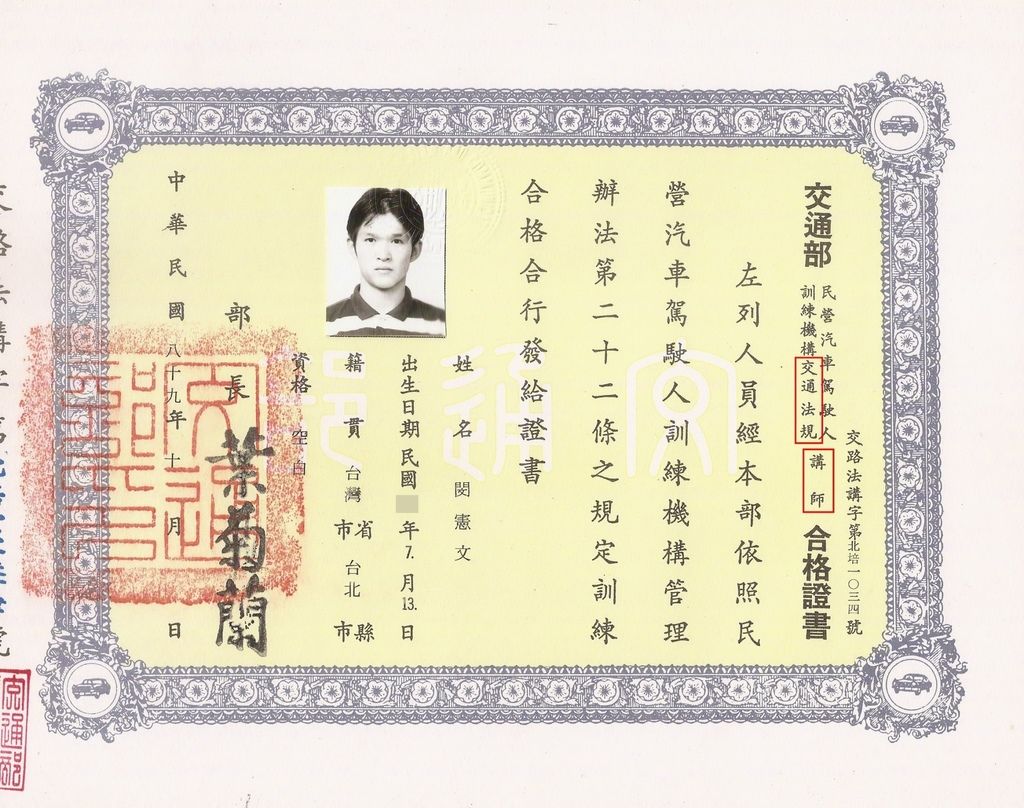 交路法講字第北培一〇三四號
交通部
民營汽車駕駛人
訓練機構交通法規
講師
合格證書
左列人員經本部依照民
營汽車駕駛人訓練機構管理
辦法第二十二條之規定訓練
合格合行發給證書
姓名 閔憲文
出生日期民國 年7.月13.日
籍貫 台灣省市 台北縣市
資格 空白
部長 葉菊蘭
中華民國八十九年十月 日
交通部